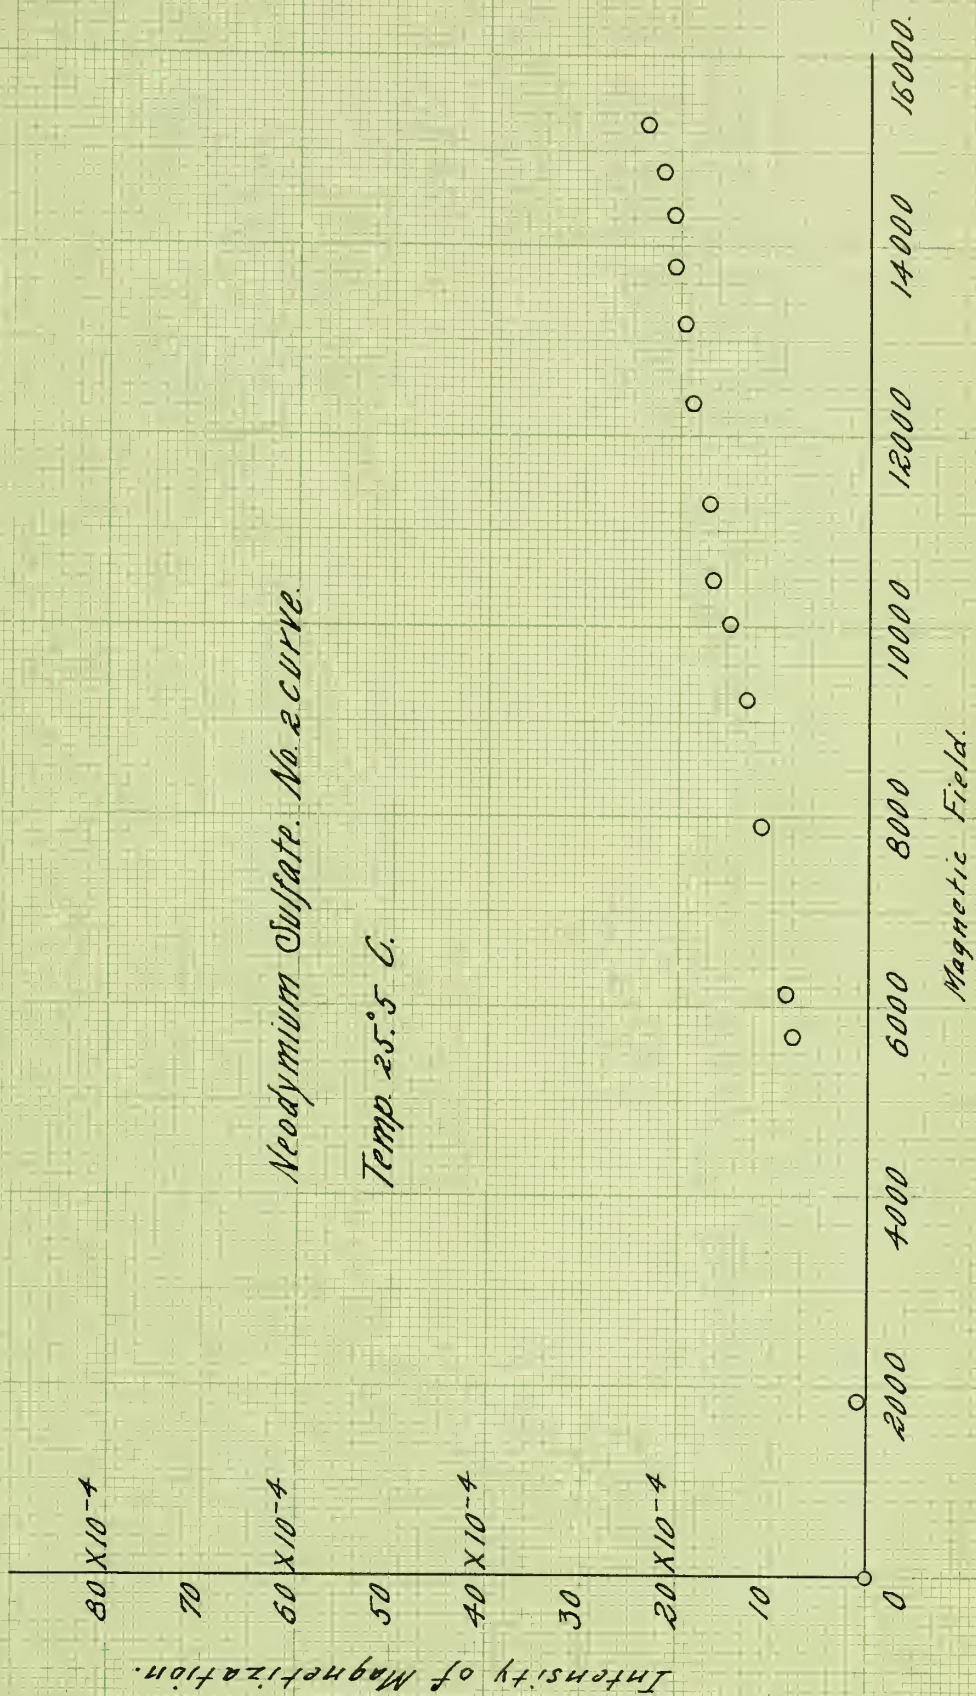 Neodymium Sulfate. No. 2 curve.
Temp. 25.°5 C.
Intensity of Magnetization.
80 X10-4
70
60 X10-4
50
40 X10-4
30
20 X10-4
10
0
2000
4000
6000
8000
10000
12000
14000
16000.
Magnetic Field.